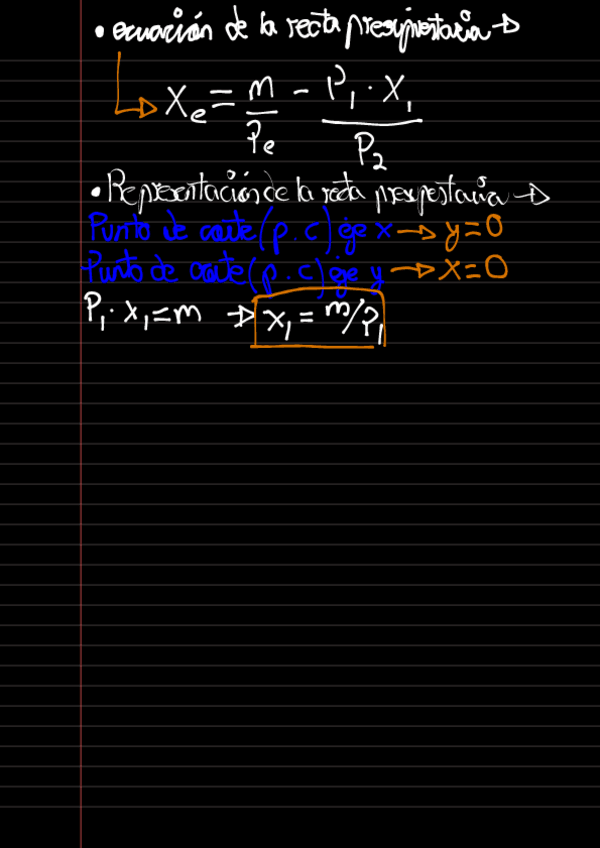 • ecuación de la recta presupuestaria →
→ Xe = m/Pe - P1 · X1/P2
• Representación de la recta presupestaria →
Punto de corte (p.c) eje x → y=0
Punto de corte (p.c) eje y → x=0
P1 · x1 = m → x1 = m/P1